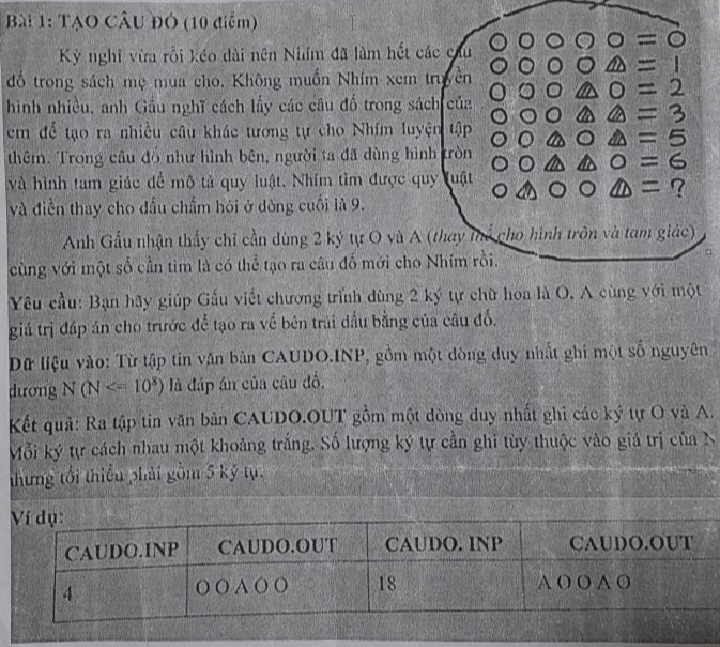 Bài 1: TẠO CÂU ĐỐ (10 điểm)
Kỳ nghỉ vừa rồi kéo dài nên Nhím đã làm hết các câu
đố trong sách mẹ mua cho. Không muốn Nhím xem truyền
hình nhiều, anh Gấu nghĩ cách lấy các câu đố trong sách của
em để tạo ra nhiều câu khác tương tự cho Nhím luyện tập
thêm. Trong câu đố như hình bên, người ta đã dùng hình tròn
và hình tam giác để mô tả quy luật. Nhím tìm được quy luật
và điền thay cho dấu chấm hỏi ở dòng cuối là 9.
= 0
= 1
= 2
= 3
= 5
= 6
= ?
Anh Gấu nhận thấy chỉ cần dùng 2 ký tự O và A (thay thế cho hình tròn và tam giác)
cùng với một số cần tìm là có thể tạo ra câu đố mới cho Nhím rồi.
Yêu cầu: Bạn hãy giúp Gấu viết chương trình dùng 2 ký tự chữ hoa là O, A cùng với một
giá trị đáp án cho trước để tạo ra vế bên trái dấu bằng của câu đố.
Dữ liệu vào: Từ tập tin văn bản CAUDO.INP, gồm một dòng duy nhất ghi một số nguyên
dương N (N <= 10⁸) là đáp án của câu đố.
Kết quả: Ra tập tin văn bản CAUDO.OUT gồm một dòng duy nhất ghi các ký tự O và A.
Mỗi ký tự cách nhau một khoảng trắng. Số lượng ký tự cần ghi tùy thuộc vào giá trị của N
nhưng tối thiểu phải gồm 5 ký tự.
Ví dụ:
CAUDO.INP CAUDO.OUT CAUDO. INP CAUDO.OUT
4 O O A O O 18 A O O A O